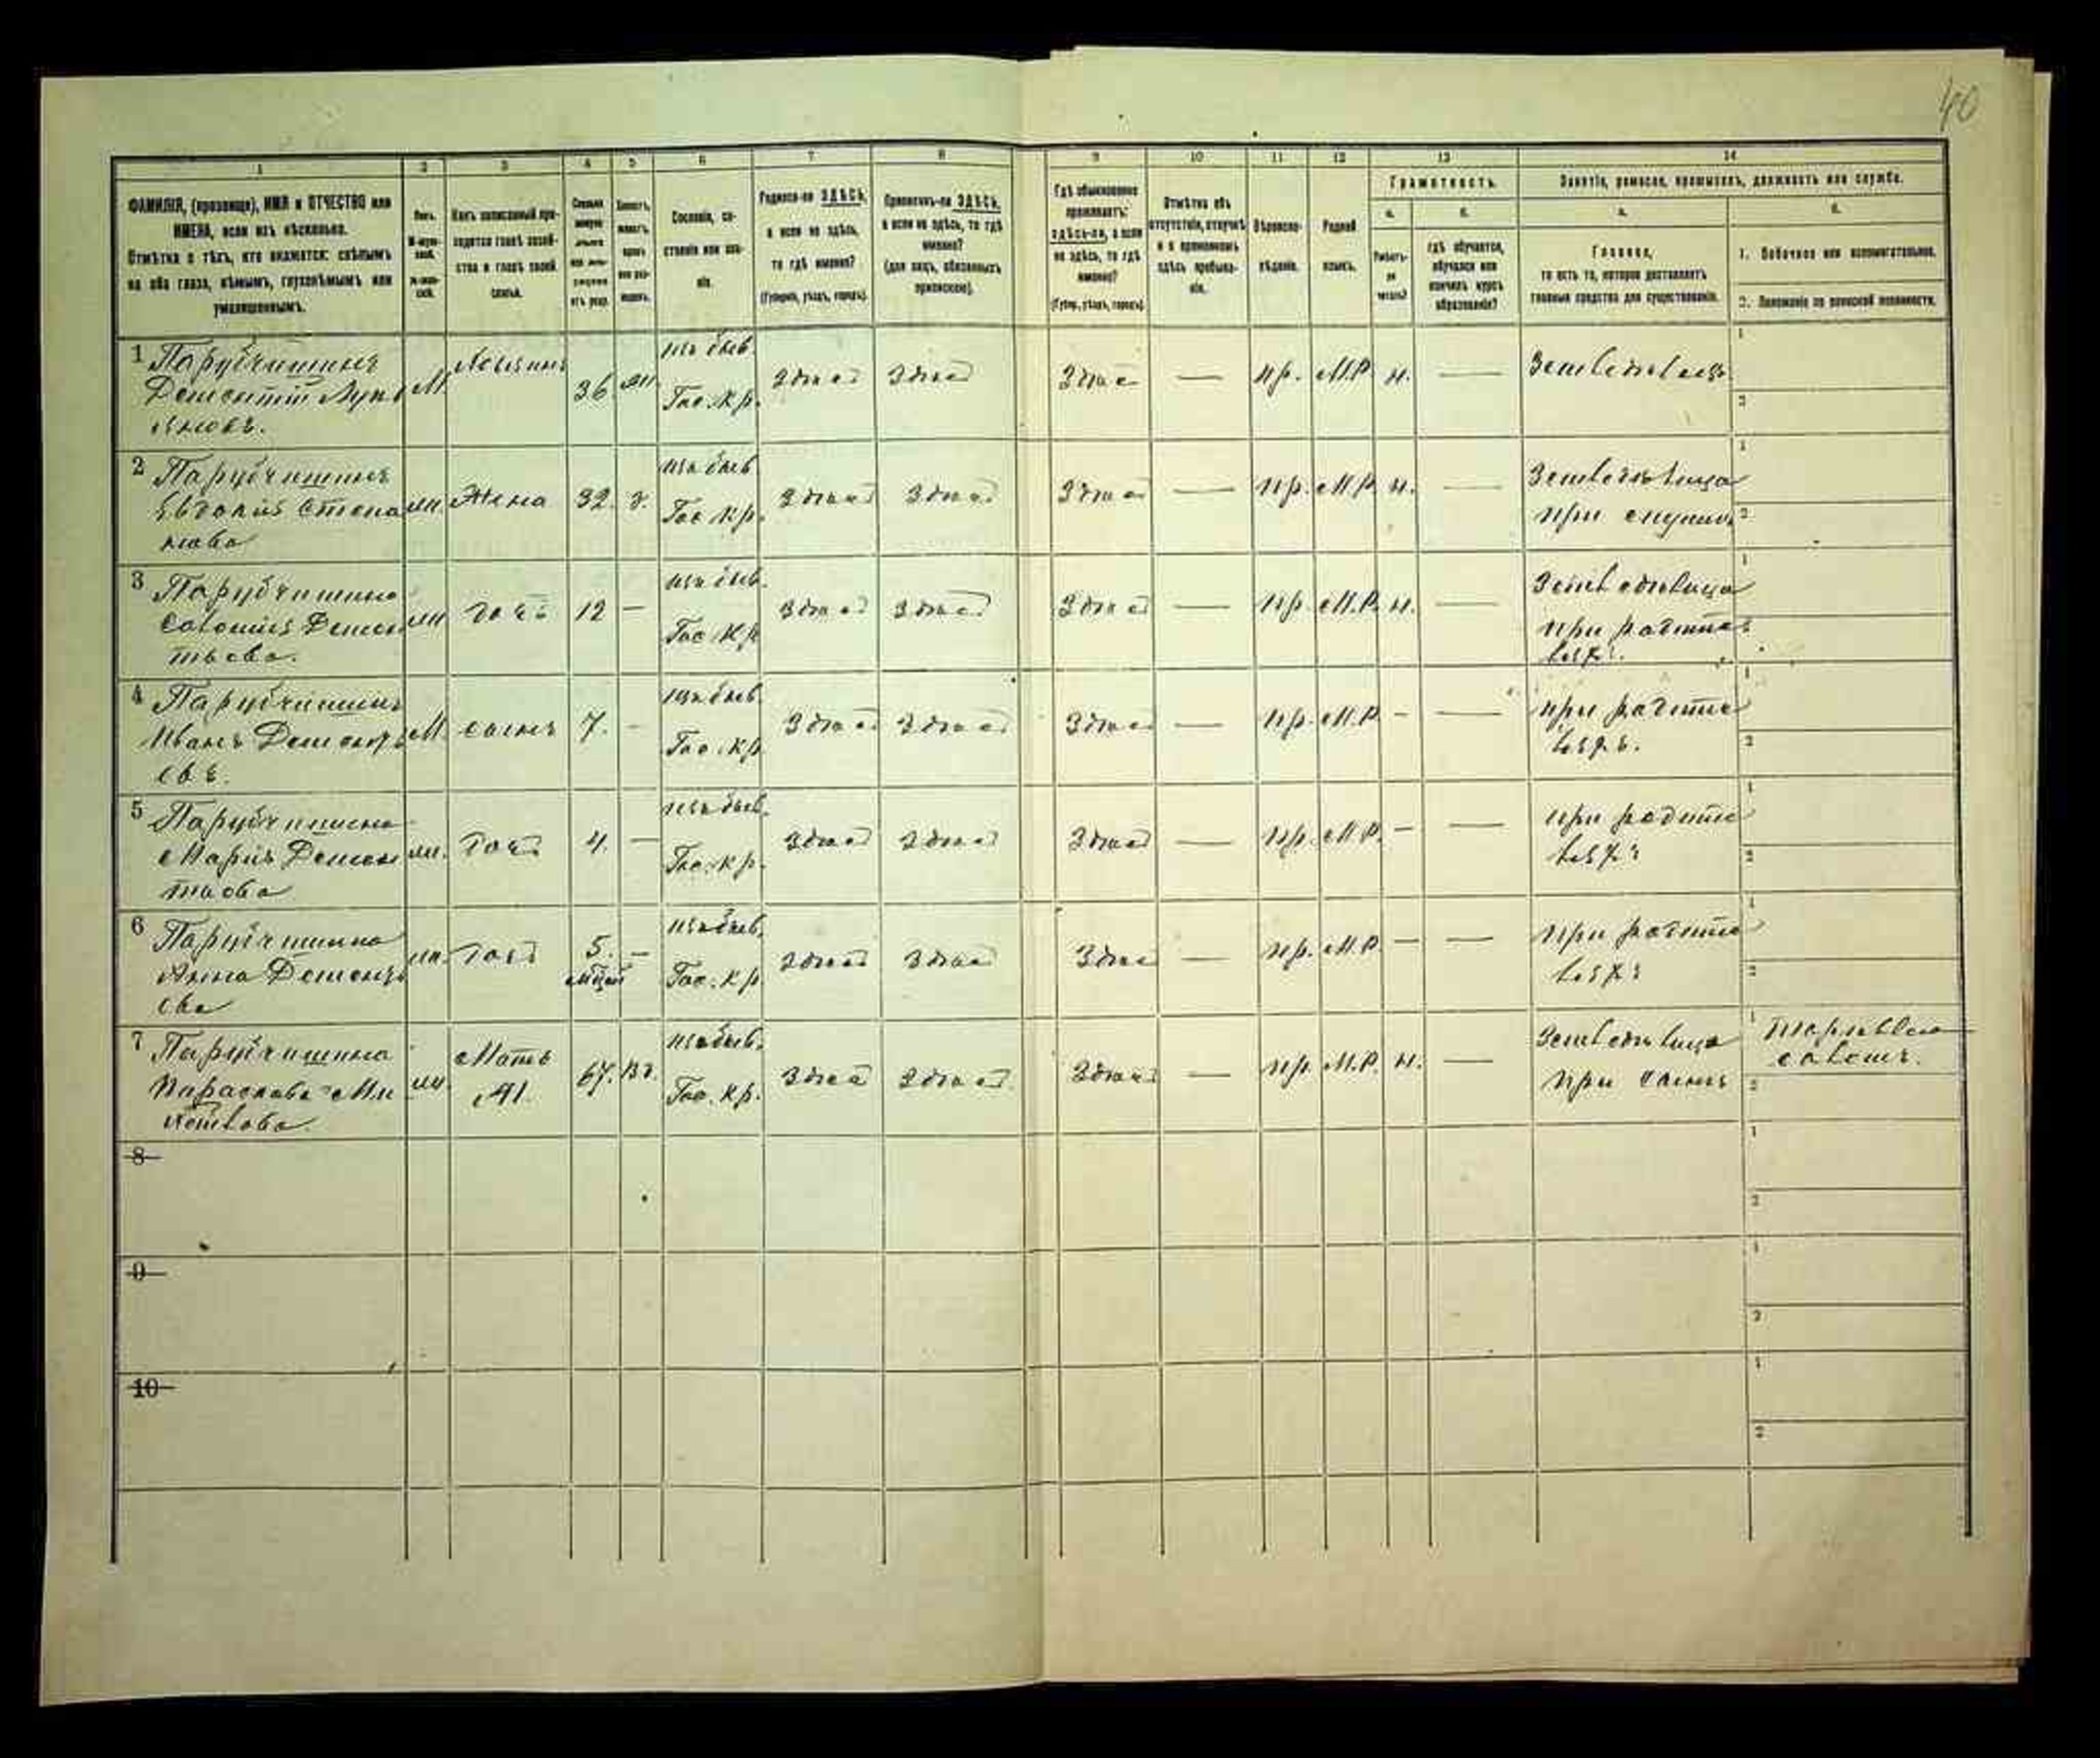 40
1 2 3 4 5 6 7 8 9 10 11 12 13 14
ФАМИЛІЯ, (прозвище), ИМЯ и ОТЧЕСТВО или
ИМЕНА, если ихъ нѣсколько.
Отмѣтка о тѣхъ, кто окажется: слѣпымъ
на оба глаза, нѣмымъ, глухонѣмымъ или
умалишеннымъ.
Полъ.
Какъ записанный при-
ходится главѣ хозяй-
ства и главѣ своей
семьи.
Сословіе, со-
стояніе или зва-
ніе.
Родился-ли ЗДѢСЬ,
а если не здѣсь,
то гдѣ именно?
(Губернія, уѣздъ, городъ).
Приписанъ-ли ЗДѢСЬ,
а если не здѣсь, то гдѣ
именно?
(для лицъ, обязанныхъ
припискою).
Гдѣ обыкновенно
проживаетъ:
здѣсь-ли, а если
не здѣсь, то гдѣ
именно?
(Губер., уѣздъ, городъ).
Отмѣтка объ
отсутствіи, отлучкѣ
и о временномъ
здѣсь пребыва-
ніи.
Вѣроиспо-
вѣданіе.
Родной
языкъ.
Грамотность.
а. б.
Умѣетъ-
ли
читать?
гдѣ обучается,
обучался или
кончилъ курсъ
образованія?
Занятіе, ремесло, промыселъ, должность или служба.
а.
Главное,
то есть то, которое доставляетъ
главныя средства для существованія.
б.
1. Побочное или вспомогательное.
2. Положеніе по воинской повинности.
1 Парубчишинъ
Дементій Лукі
яновъ.
М Хозяинъ 36 жн. изъ быв. Гос. кр. Здѣсь Здѣсь Здѣсь — пр. М.Р. н. — Землѣдѣлецъ
2 Парубчишина
Евдокія Степа
нова
жн Жена 32. з. изъ быв. Гос. кр. Здѣсь Здѣсь Здѣсь — пр. М.Р. н. — Землѣдѣлица
при
3 Парубчишина
Соломія Демен
тьева.
жн дочь 12 — изъ быв. Гос. кр. Здѣсь Здѣсь Здѣсь — пр. М.Р. н. — Землѣдѣлица
при родите
ляхъ.
4 Парубчишинъ
Иванъ Дементь
евъ.
М сынъ 7. - изъ быв. Гос. кр. Здѣсь Здѣсь Здѣсь — пр. М.Р. - — при родите
ляхъ.
5 Парубчишина
Марія Демен
тьева
жн. дочь 4. — изъ быв. Гос. кр. Здѣсь Здѣсь Здѣсь — пр. М.Р. — — при родите
ляхъ
6 Парубчишина
Анна Дементь
ева
жн. дочь 5. — изъ быв. Гос. кр. Здѣсь Здѣсь Здѣсь — пр. М.Р. — — при родите
ляхъ
7 Парубчишина
Параскева
жн. Мать 67. вд. изъ быв. Гос. кр. Здѣсь Здѣсь Здѣсь — пр. М.Р. н. — Землѣдѣлица
при сынѣ
8
9
10